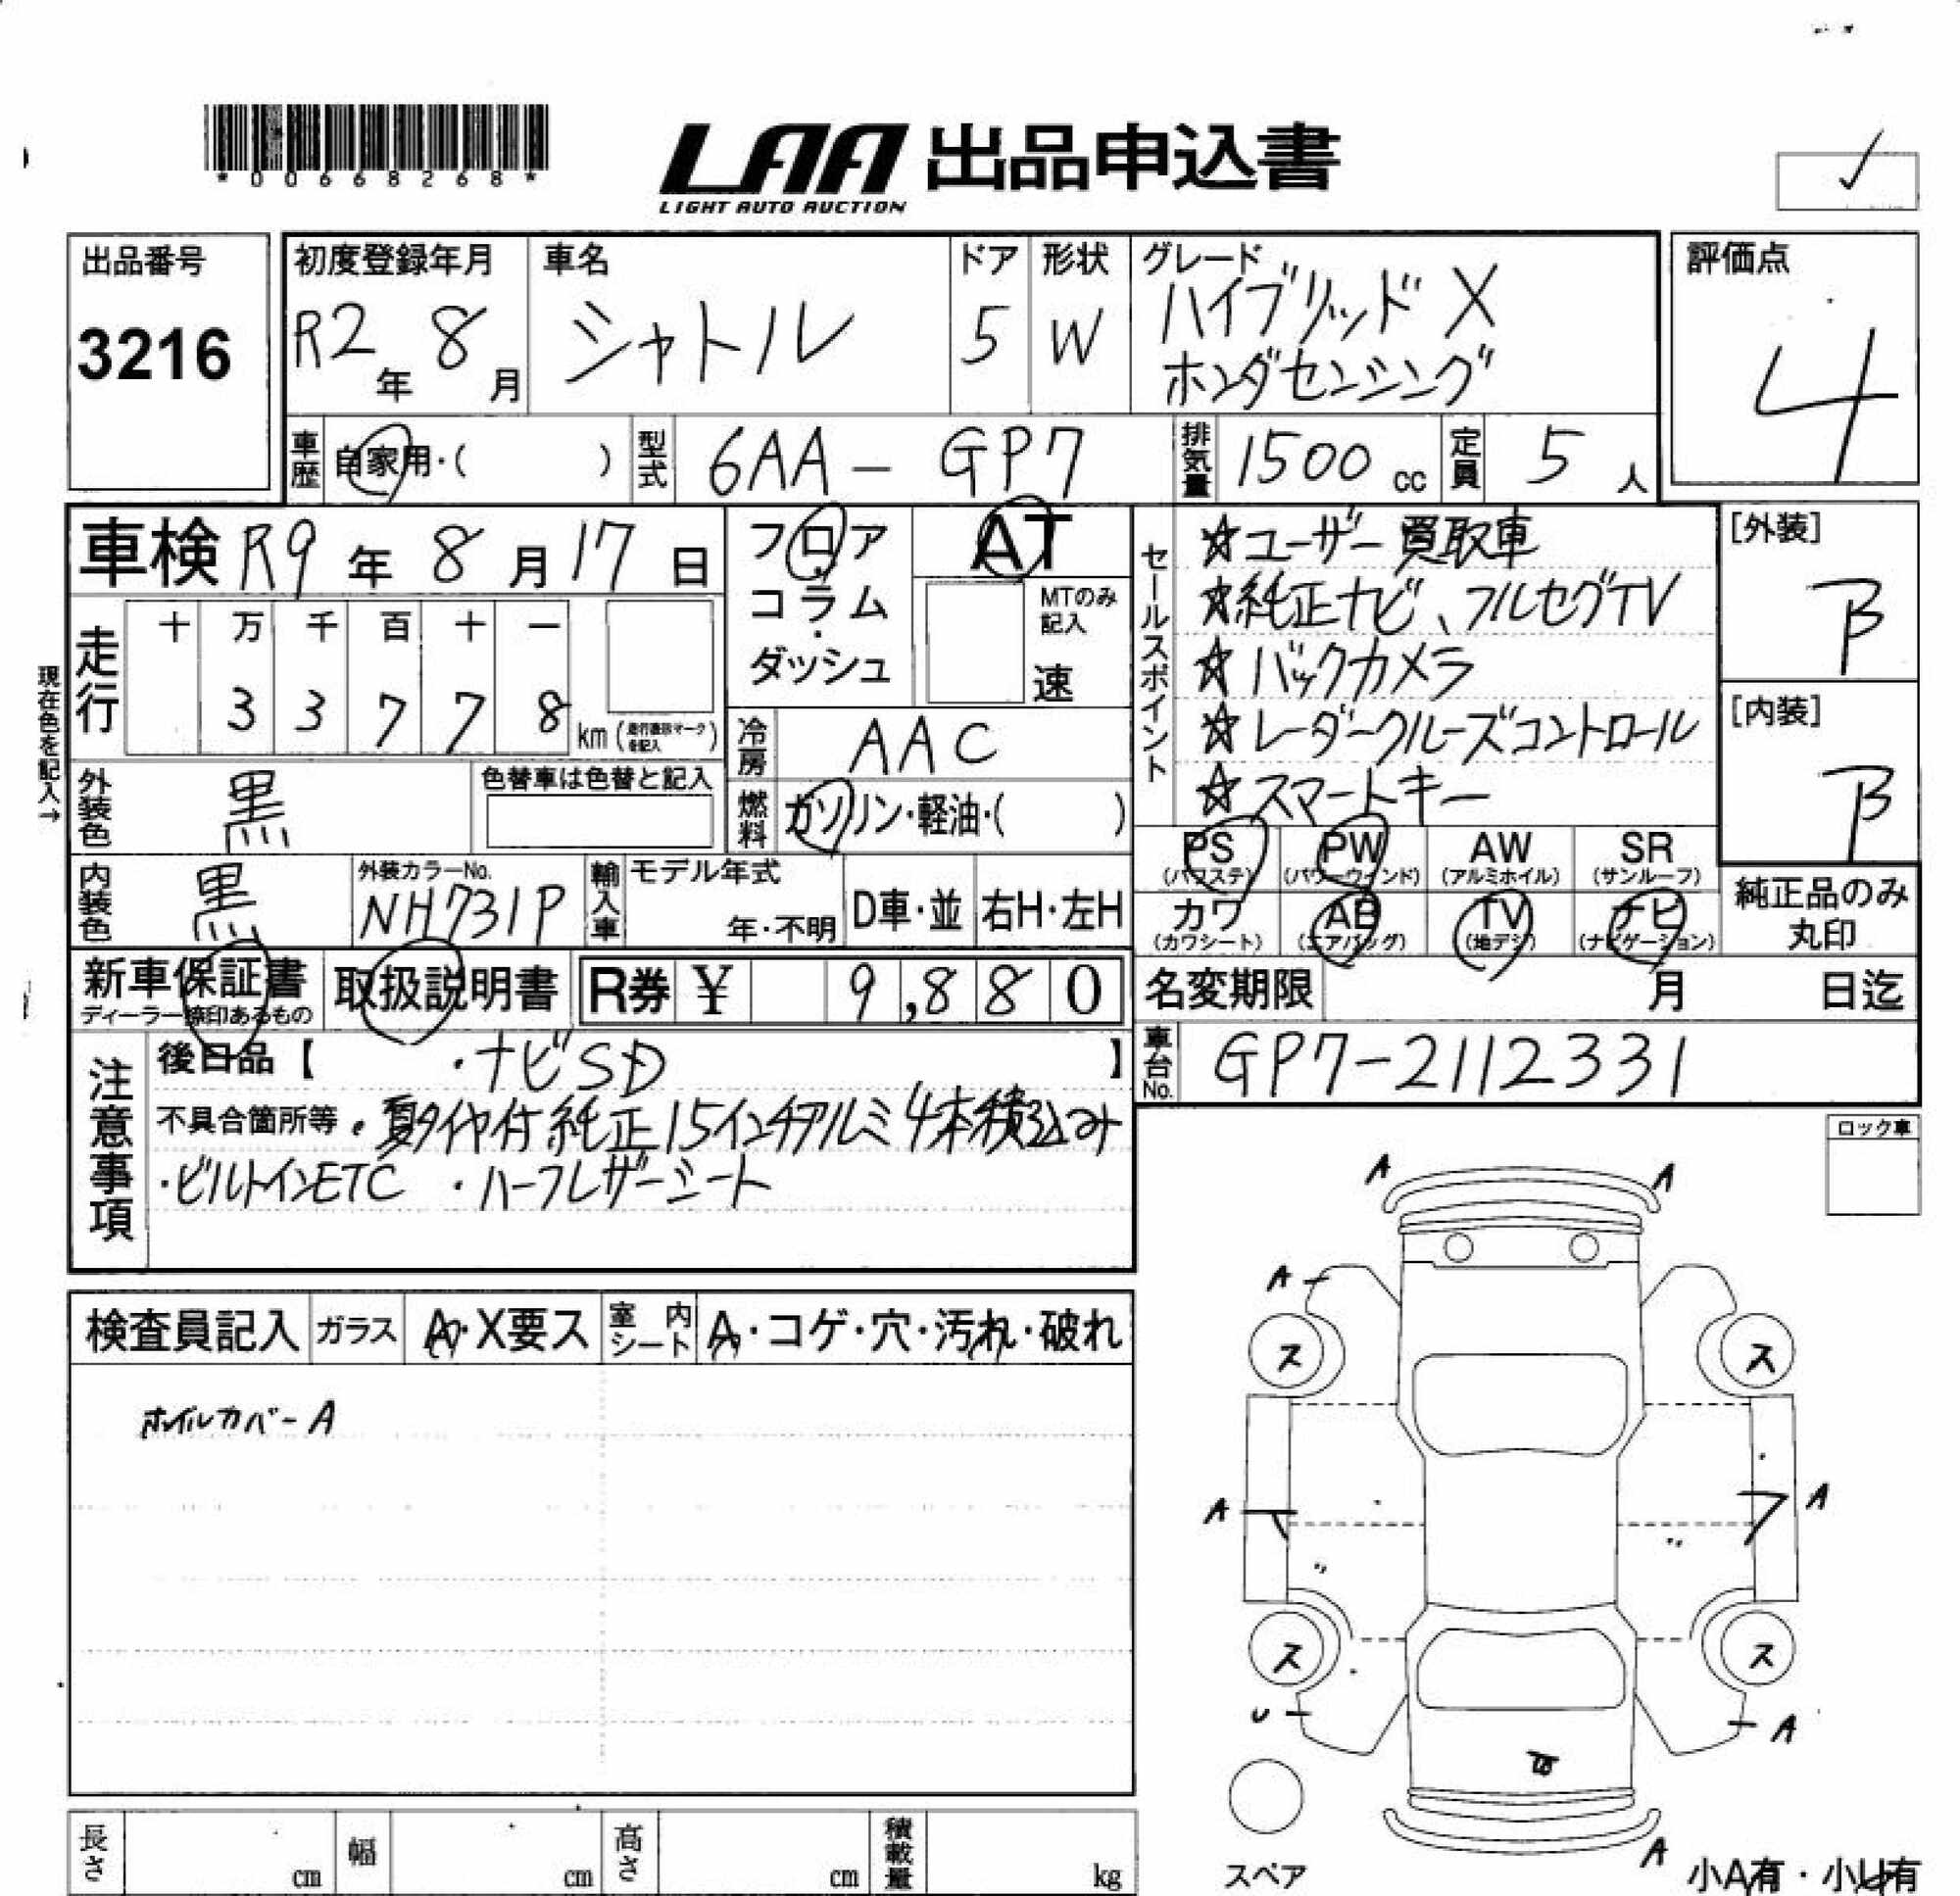 *00668268*
LAA 出品申込書
LIGHT AUTO AUCTION
✓
出品番号
3216
初度登録年月
R2年 8月
車名
シャトル
ドア
5
形状
W
グレード
ハイブリッド X
ホンダセンシング
評価点
4
車歴
自家用・( )
型式
6AA - GP7
排気量
1500 cc
定員
5 人
車検 R9年 8月 17日
フロア
コラム
・
ダッシュ
AT
MTのみ
記入
速
セールスポイント
☆ユーザー買取車
☆純正ナビ、フルセグTV
☆バックカメラ
☆レーダークルーズコントロール
☆スマートキー
[外装]
B
[内装]
B
現在色を記入→
走行
十 万 千 百 十 一
3 3 7 7 8 km
冷房
AAC
外装色
黒
色替車は色替と記入
燃料
ガソリン・軽油・( )
内装色
黒
外装カラーNo.
NH731P
輸入車
モデル年式
年・不明
D車・並
右H・左H
PS
(パワステ)
PW
(パワーウインド)
AW
(アルミホイル)
SR
(サンルーフ)
カワ
(カワシート)
AB
(エアバッグ)
TV
(地デジ)
ナビ
(ナビゲーション)
純正品のみ
丸印
新車保証書
ディーラー捺印あるもの
取扱説明書
R券 ¥ 9,880
名変期限 月 日迄
車台No.
GP7-2112331
注意事項
後日品【 ・ナビSD 】
不具合箇所等・夏タイヤ付純正15インチアルミ4本積込み
・ビルトインETC ・ハーフレザーシート
ロック車
検査員記入
ガラス
A・X要ス
室内シート
A・コゲ・穴・汚れ・破れ
ホイルカバーA
A A
A
ス ス
A A
ス ス
U A
A
スペア
小A有・小U有
長さ cm
幅 cm
高さ cm
積載量 kg